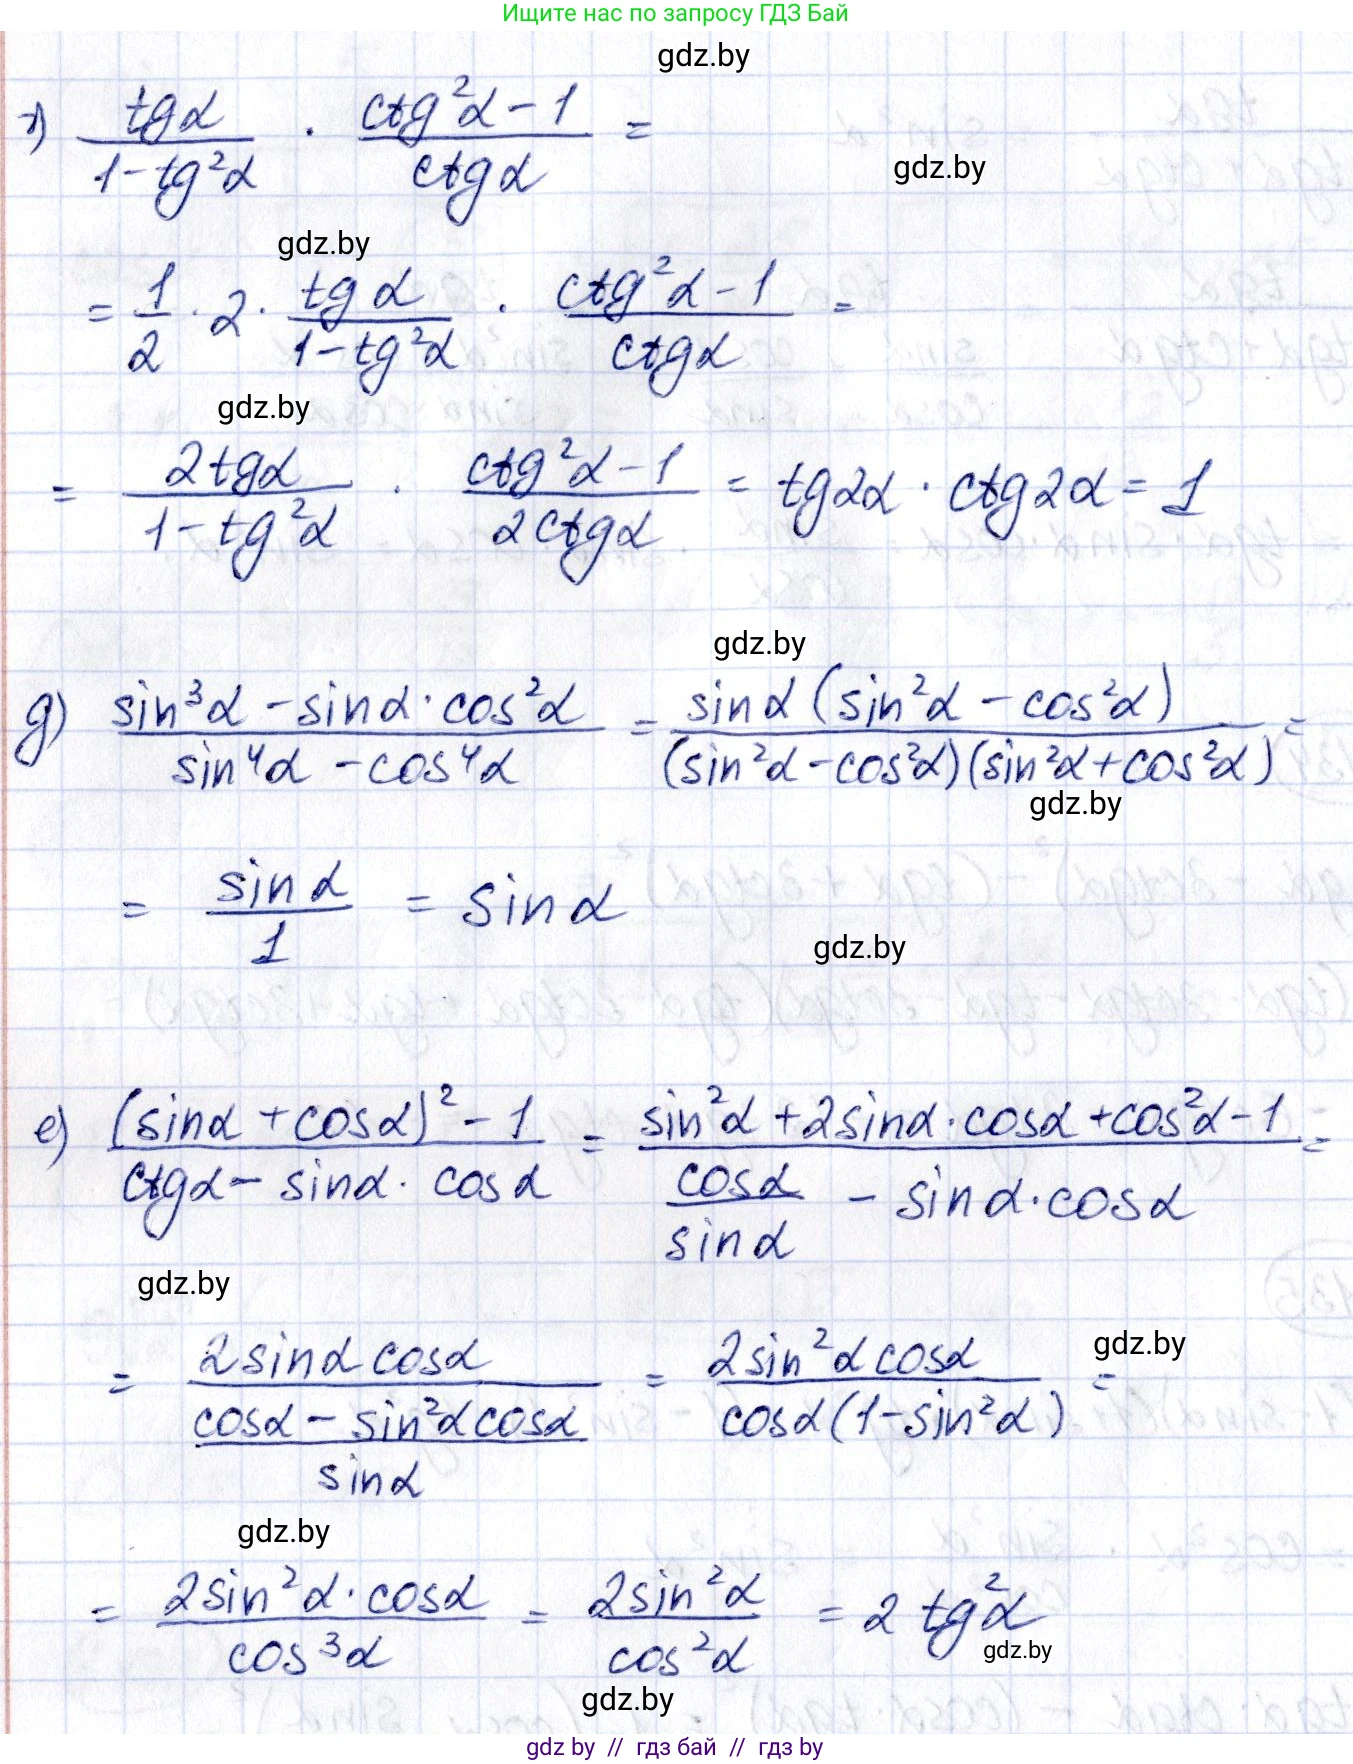 Ищите нас по запросу ГДЗ Бай
gdz.by
г) tgα / (1 - tg²α) · (ctg²α - 1) / ctgα =
gdz.by
gdz.by
= 1/2 · 2 · tgα / (1 - tg²α) · (ctg²α - 1) / ctgα =
gdz.by
= 2tgα / (1 - tg²α) · (ctg²α - 1) / 2ctgα = tg2α · ctg2α = 1
gdz.by
g) (sin³α - sinα · cos²α) / (sin⁴α - cos⁴α) = sinα (sin²α - cos²α) / (sin²α - cos²α)(sin²α + cos²α) =
gdz.by
= sinα / 1 = sinα
gdz.by
е) ((sinα + cosα)² - 1) / (ctgα - sinα · cosα) = (sin²α + 2sinα · cosα + cos²α - 1) / (cosα / sinα - sinα · cosα) =
gdz.by
gdz.by
= 2sinα cosα / ((cosα - sin²α cosα) / sinα) = 2sin²α cosα / cosα(1 - sin²α) =
gdz.by
= 2sin²α · cosα / cos³α = 2sin²α / cos²α = 2 tg²α
gdz.by
gdz.by
gdz by // гдз бай // гдз by